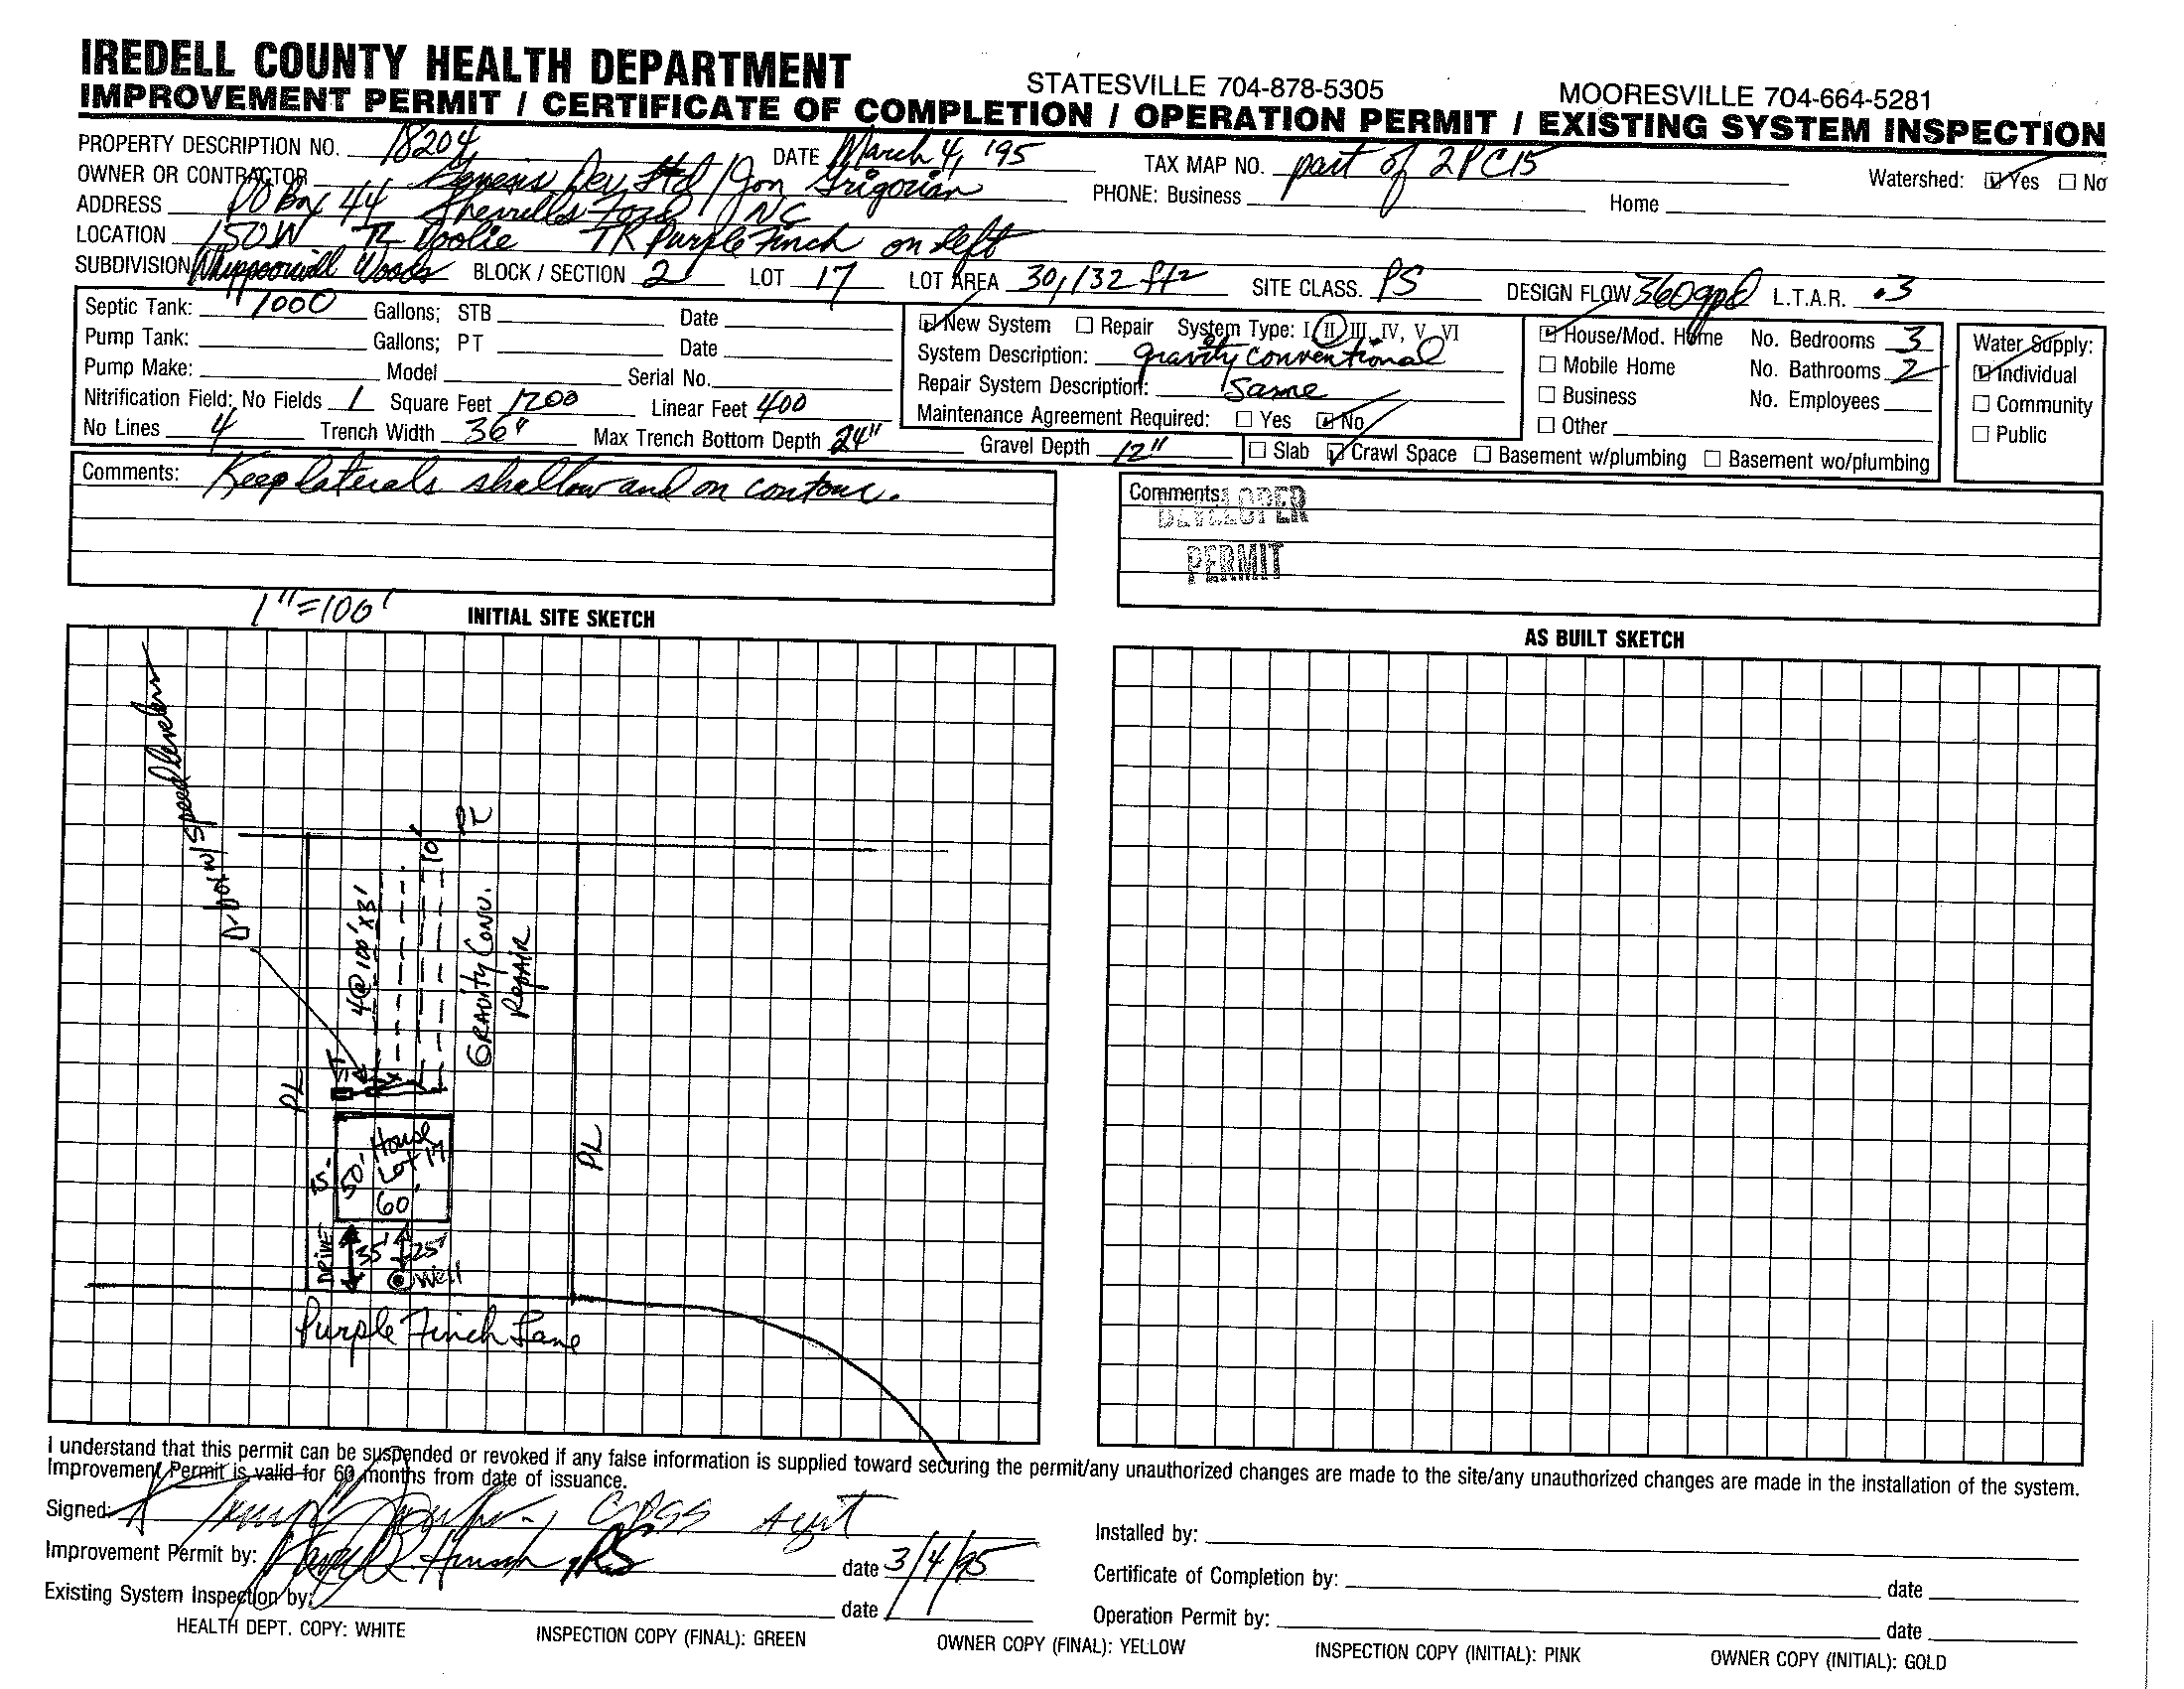 IREDELL COUNTY HEALTH DEPARTMENT
STATESVILLE 704-878-5305 MOORESVILLE 704-664-5281
IMPROVEMENT PERMIT / CERTIFICATE OF COMPLETION / OPERATION PERMIT / EXISTING SYSTEM INSPECTION
PROPERTY DESCRIPTION NO. 18204 DATE March 4, '95 TAX MAP NO. part of 2PC15
OWNER OR CONTRACTOR Genesis Dev. Ltd / Jon Grigorian PHONE: Business Home Watershed: Yes No
ADDRESS PO Box 44 Sherrells Ford NC
LOCATION 150W TL Doolie TR Purple Finch on left
SUBDIVISION Whippoorwill Woods BLOCK / SECTION 2 LOT 17 LOT AREA 30,132 ft2 SITE CLASS. PS DESIGN FLOW 360gpd L.T.A.R. .3
Septic Tank: 1000 Gallons; STB Date
Pump Tank: Gallons; PT Date
Pump Make: Model Serial No.
Nitrification Field: No Fields 1 Square Feet 1200 Linear Feet 400
No Lines 4 Trench Width 36" Max Trench Bottom Depth 24" Gravel Depth 12"
New System Repair System Type: I, II, III, IV, V, VI
System Description: gravity conventional
Repair System Description: Same
Maintenance Agreement Required: Yes No
House/Mod. Home No. Bedrooms 3
Mobile Home No. Bathrooms 2
Business No. Employees
Other
Slab Crawl Space Basement w/plumbing Basement wo/plumbing
Water Supply:
Individual
Community
Public
Comments: Keep laterals shallow and on contour.
Comments:
DEVELOPER
PERMIT
1"=100'
INITIAL SITE SKETCH
AS BUILT SKETCH
D-box w/ speed levelers
PL
10'
4@100'x3'
GRAVITY CONV.
REPAIR
PL
PL
15'
50'
House
Lot 17
60'
DRIVE
35'
25'
Well
Purple Finch Lane
I understand that this permit can be suspended or revoked if any false information is supplied toward securing the permit/any unauthorized changes are made to the site/any unauthorized changes are made in the installation of the system.
Improvement Permit is valid for 60 months from date of issuance.
Signed: X
Improvement Permit by: RS date 3/4/95
Existing System Inspection by: date
Installed by:
Certificate of Completion by: date
Operation Permit by: date
HEALTH DEPT. COPY: WHITE INSPECTION COPY (FINAL): GREEN OWNER COPY (FINAL): YELLOW INSPECTION COPY (INITIAL): PINK OWNER COPY (INITIAL): GOLD